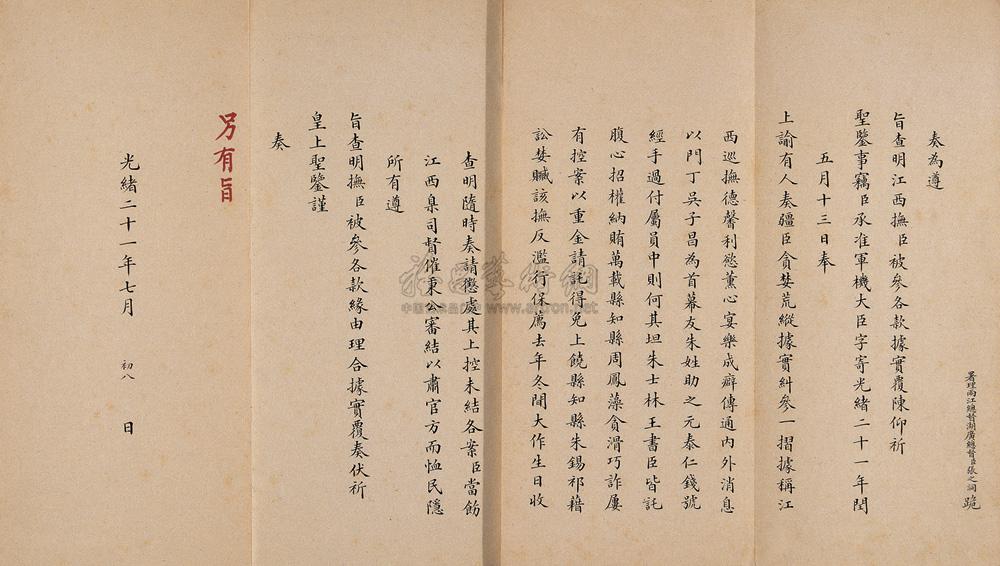 署理兩江總督湖廣總督臣張之洞跪
奏為遵
旨查明江西撫臣被參各款據實覆陳仰祈
聖鑒事竊臣承准軍機大臣字寄光緒二十一年閏
五月十三日奉
上諭有人奏疆臣貪婪荒縱據實糾參一摺據稱江
西巡撫德馨利慾薰心宴樂成癖傳通內外消息
以門丁吳子昌為首幕友朱姓助之元泰仁錢號
經手過付屬員中則何其坦朱士林王書臣皆託
腹心招權納賄萬載縣知縣周鳳藻貪滑巧詐屢
有控案以重金請託得免上饒縣知縣朱錫祁藉
訟婪贓該撫反濫行保薦去年冬間大作生日收
查明隨時奏請懲處其上控未結各案臣當飭
江西臬司督催秉公審結以肅官方而恤民隱
所有遵
旨查明撫臣被參各款緣由理合據實覆奏伏祈
皇上聖鑒謹
奏
另有旨
光緒二十一年七月 初八 日
www.artron.net